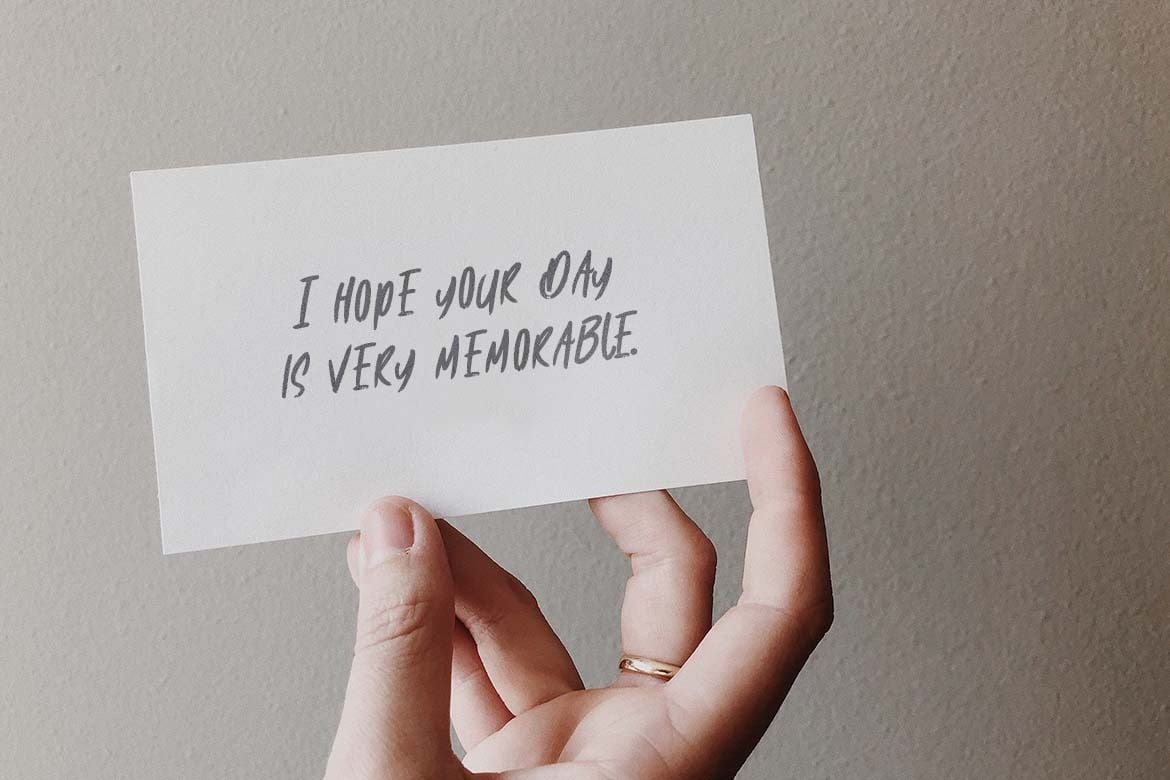 I HOPE YOUR DAY
IS VERY MEMORABLE.